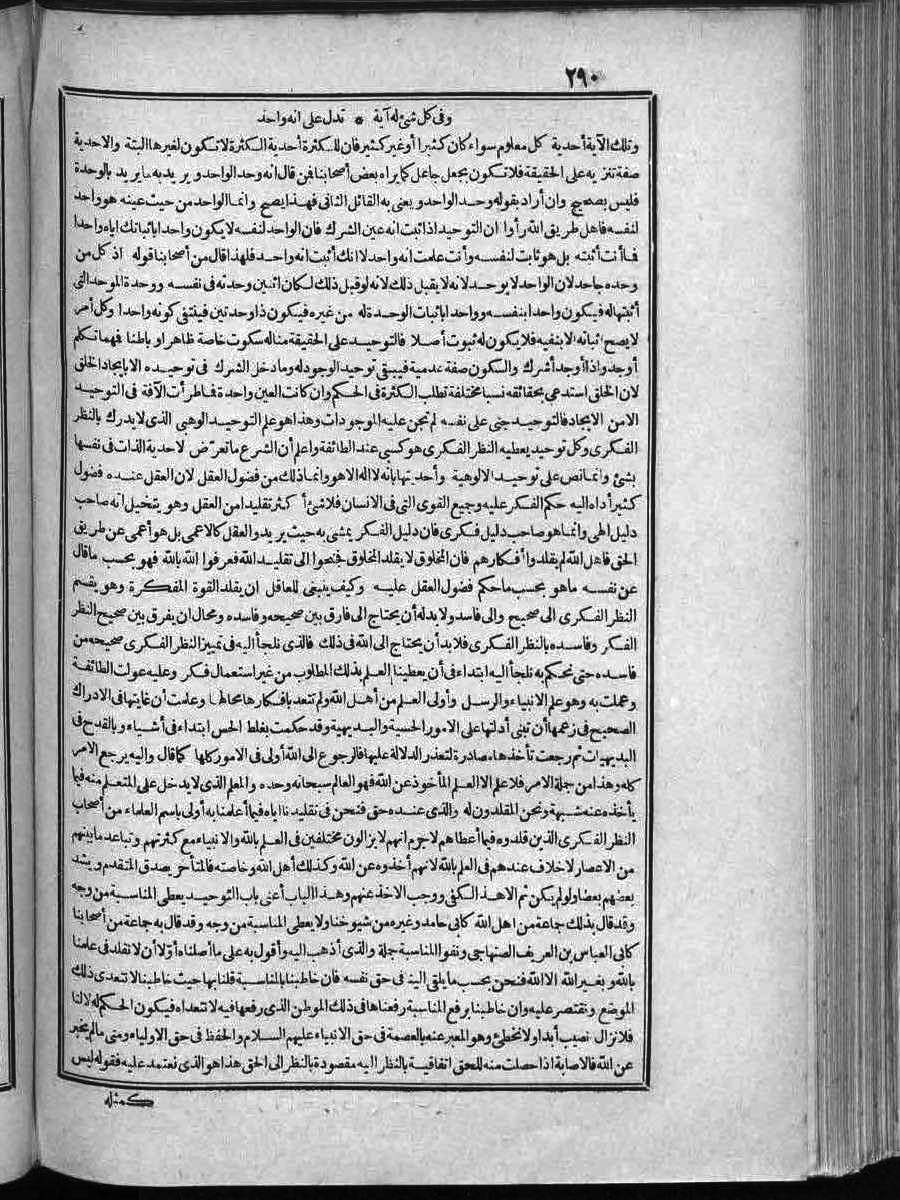 ٢٩٠
وفى كل شئ له آية * تدل على انه واحد
وتلك الآية أحدية كل معلوم سواء كان كثيرا أو غير كثير فان للكثرة أحدية الكثرة لا تكون لغيرها البتة والاحدية
صفة تنزيه على الحقيقة فلا تكون بجعل جاعل كما يراه بعض أصحابنا فن قال انه وحد الواحد و يريد به ما يريد بالوحدة
فليس بصحيح وان أراد بقوله وحد الواحد و يعنى به القائل الثانى فهذا يصح وانما الواحد من حيث عينه هو واحد
لنفسه فاهل طريق الله رأوا ان التوحيد اذا ثبت انه عين الشرك فان الواحد لنفسه لا يكون واحدا باثباتك اياه واحدا
فما أنت أثبته بل هو ثابت لنفسه وأنت علمت انه واحد لا انك أثبت انه واحد فلهذا قال من أصحابنا قوله اذ كل من
وحده جاحد لان الواحد لا يوحد لانه لا يقبل ذلك لانه لو قبل ذلك لكان اثنين وحدته فى نفسه ووحدة الموحد التى
أثبتها له فيكون واحدا بنفسه وواحدا باثبات الوحدة له من غيره فيكون ذا وحدتين فينتفى كونه واحدا وكل أمر
لا يصح اثباته الا بنفيه فلا يكون له ثبوت أصلا فالتوحيد على الحقيقة مناله سكوت خاصة ظاهرا و باطنا فهما تكلم
أوجد واذا أوجد أشرك والسكون صفة عدمية فيبقى توحيد الوجود له وما دخل الشرك فى توحيده الا بايجاد الخلق
لان الخلق استدعى بحقائقه نسبا مختلفة تطلب الكثرة فى الحكم وان كانت العين واحدة فما طرأت الآفة فى التوحيد
الا من الايجاد فالتوحيد جنى على نفسه لم تجن عليه الموجودات وهذا هو علم التوحيد الوهبى الذى لا يدرك بالنظر
الفكرى وكل توحيد يعطيه النظر الفكرى هو كسبى عند الطائفة واعلم أن الشرع ما تعرّض لاحدية الذات فى نفسها
بشئ وانما نص على توحيد الالوهية وأحديتها بانه لا اله الا هو وانما ذلك من فضول العقل لان العقل عنده فضول
كثير أداه اليه حكم الفكر عليه وجميع القوى التى فى الانسان فلا شئ أكثر تقليدا من العقل وهو يتخيل انه صاحب
دليل الهى وانما هو صاحب دليل فكرى فان دليل الفكر يمشى به حيث يريد والعقل كالاعمى بل هو أعمى عن طريق
الحق فاهل الله لم يقلدوا أفكارهم فان المخلوق لا يقلد المخلوق فجنحوا الى تقليد الله فعرفوا الله بالله فهو بحسب ما قال
عن نفسه ما هو بحسب ما حكم فضول العقل عليه وكيف ينبغى للعاقل ان يقلد القوة المفكرة وهو يقسم
النظر الفكرى الى صحيح والى فاسد ولا بد له أن يحتاج الى فارق بين صحيحه وفاسده ومحال ان يفرق بين صحيح النظر
الفكر وفاسده بالنظر الفكرى فلا بد أن يحتاج الى الله فى ذلك فالذى نلجأ اليه فى تمييز النظر الفكرى صحيحه من
فاسده حتى نحكم به نلجأ اليه ابتداء فى أن يعطينا العلم بذلك المطلوب من غير استعمال فكر وعليه عولت الطائفة
وعملت به وهو علم الانبياء والرسل وأولى العلم من أهل الله ولم تتعد بافكارها محالها وعلمت أن غايتها فى الادراك
الصحيح فى زعمها أن تبنى أدلتها على الامور الحسية والبديهية وقد حكمت بغلط الحس ابتداء فى أشياء و بالقدح فى
البديهيات ثم رجعت تأخذها مصادرة لتعذر الدلالة عليها فالرجوع الى الله أولى فى الامور كلها كما قال واليه يرجع الامر
كله وهذا من جملة الامر فلا علم الا العلم المأخوذ عن الله فهو العالم سبحانه وحده والمعلم الذى لا يدخل على المتعلم منه فيما
يأخذه عنه شبهة ونحن المقلدون له والذى عنده حق فنحن فى تقليدنا اياه فيما أعلمنا به أولى باسم العلماء من أصحاب
النظر الفكرى الذين قلدوه فيما أعطاهم لا جرم انهم لا يزالون مختلفين فى العلم بالله والانبياء مع كثرتهم وتباعد ما بينهم
من الاعصار لا خلاف عندهم فى العلم بالله لانهم أخذوه عن الله وكذلك أهل الله وخاصته فالمتأخر يصدق المتقدم ويشد
بعضهم بعضا ولو لم يكن ثم الا هذا لكفى ووجب الاخذ عنهم وهذا الباب أعنى باب التوحيد يعطى المناسبة من وجه
وقد قال بذلك جماعة من اهل الله كابى حامد وغيره من شيوخنا ولا يعطى المناسبة من وجه وقد قال به جماعة من أصحابنا
كابى العباس بن العريف الصنهاجى ونفوا المناسبة جملة والذى أذهب اليه وأقول به على ما أصلناه أوّلا أن لا نقلد فى علمنا
بالله و بغير الله الا الله فنحن بحسب ما يلقى الينا فى حق نفسه فان خاطبنا بالمناسبة قلنا بها حيث خاطبنا لا نتعدى ذلك
الموضع ونقتصر عليه وان خاطبنا برفع المناسبة رفعناها فى ذلك الموطن الذى رفعها فيه لا نتعداه فيكون الحكم له لا لنا
فلا نزال نصيب أبدا ولا نخطئ وهو المعبر عنه بالعصمة فى حق الانبياء عليهم السلام والحفظ فى حق الاولياء ومتى ما لم يخبر
عن الله فالاصابة اذا حصلت منه للحق اتفاقية بالنظر اليه مقصودة بالنظر الى الحق هذا هو الذى نعتمد عليه فقوله ليس
كمثله